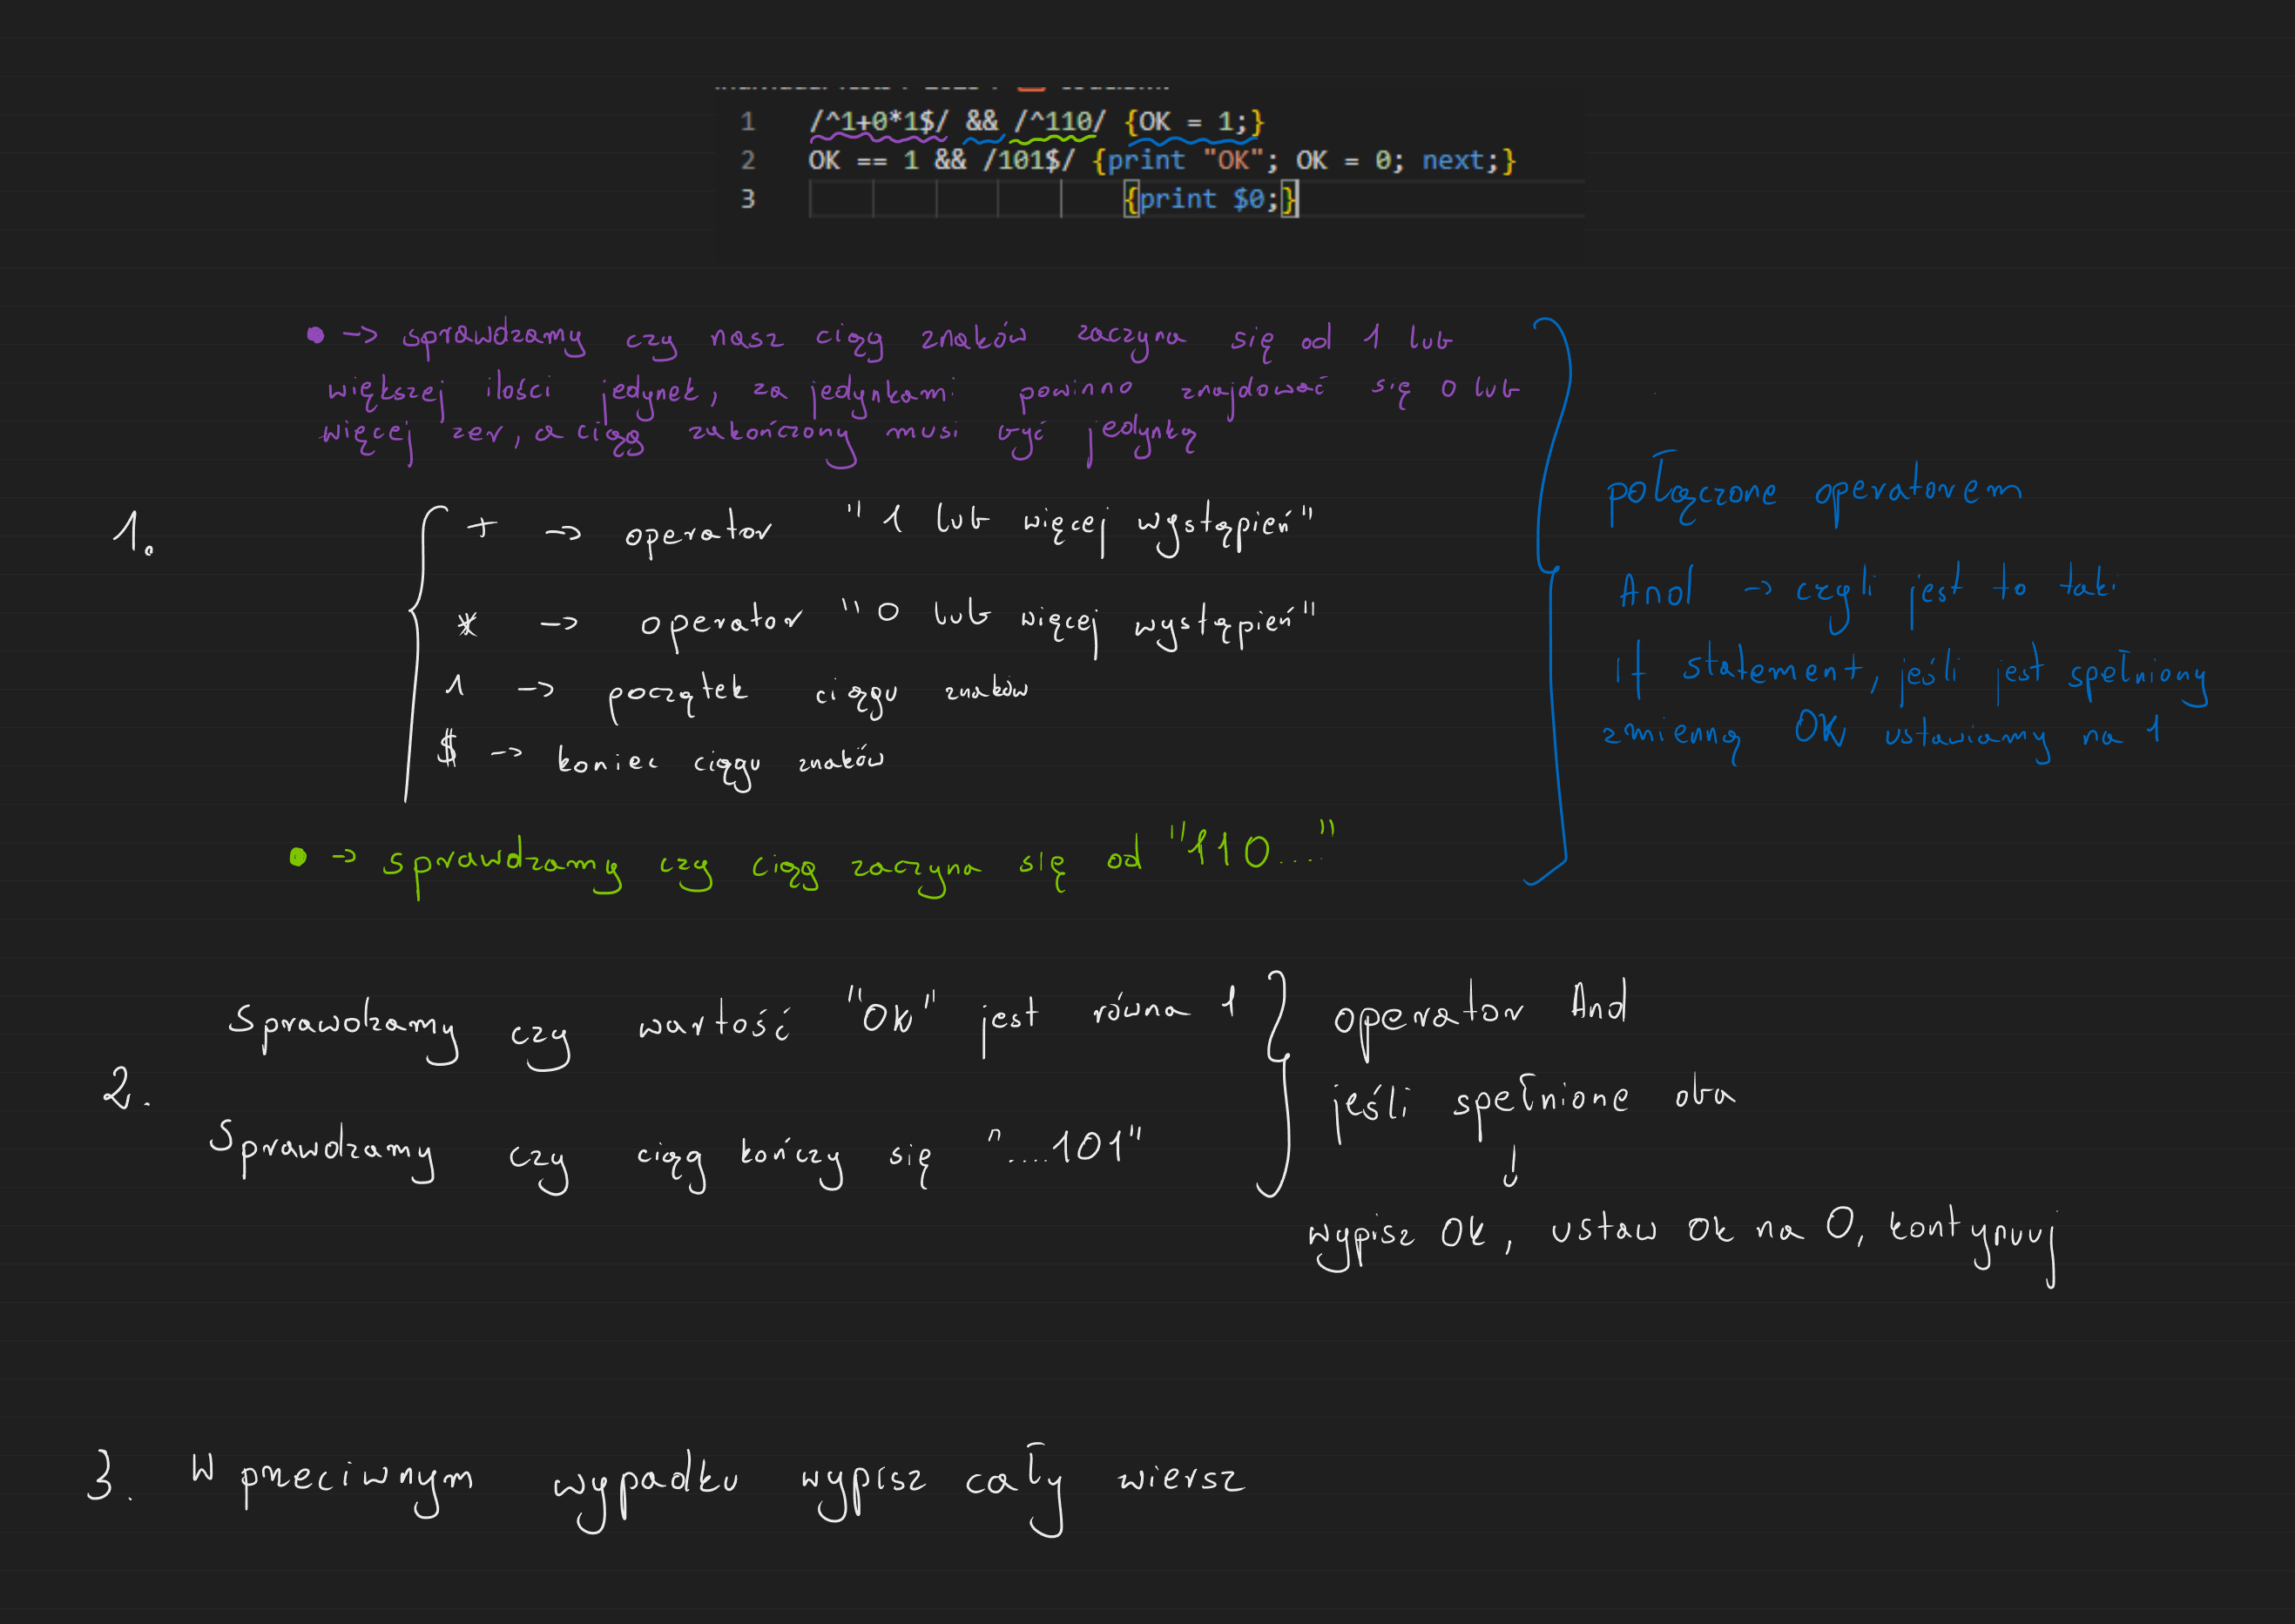 1 /^1+0*1$/ && /^110/ {OK = 1;}
2 OK == 1 && /101$/ {print "OK"; OK = 0; next;}
3 {print $0;}
• -> sprawdzamy czy nasz ciąg znaków zaczyna się od 1 lub
większej ilości jedynek, za jedynkami powinno znajdować się 0 lub
więcej zer, a ciąg zakończony musi być jedynką
1.
+ -> operator "1 lub więcej wystąpień"
* -> operator "0 lub więcej wystąpień"
^ -> początek ciągu znaków
$ -> koniec ciągu znaków
• -> sprawdzamy czy ciąg zaczyna się od "110...."
połączone operatorem
And -> czyli jest to taki
if statement, jeśli jest spełniony
zmienną OK ustawiamy na 1
2.
Sprawdzamy czy wartość "OK" jest równa 1
Sprawdzamy czy ciąg kończy się "....101"
operator And
jeśli spełnione oba
↓
wypisz OK, ustaw ok na 0, kontynuuj
3. W przeciwnym wypadku wypisz cały wiersz